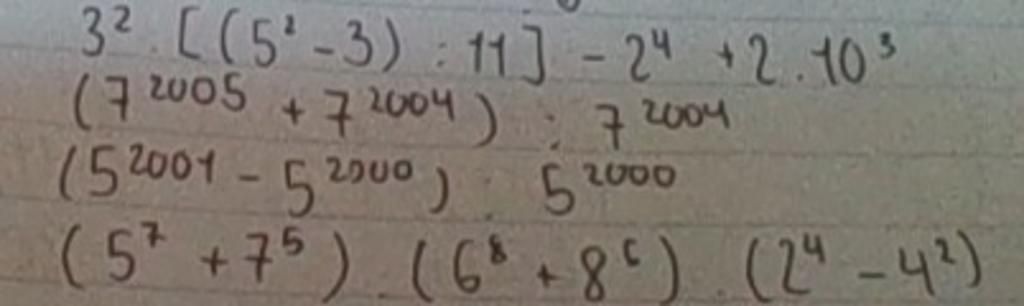 3² . [(5² - 3) : 11] - 2⁴ + 2 . 10³
(7²⁰⁰⁵ + 7²⁰⁰⁴) : 7²⁰⁰⁴
(5²⁰⁰¹ - 5²⁰⁰⁰) : 5²⁰⁰⁰
(5⁷ + 7⁵) . (6⁸ + 8⁶) . (2⁴ - 4²)